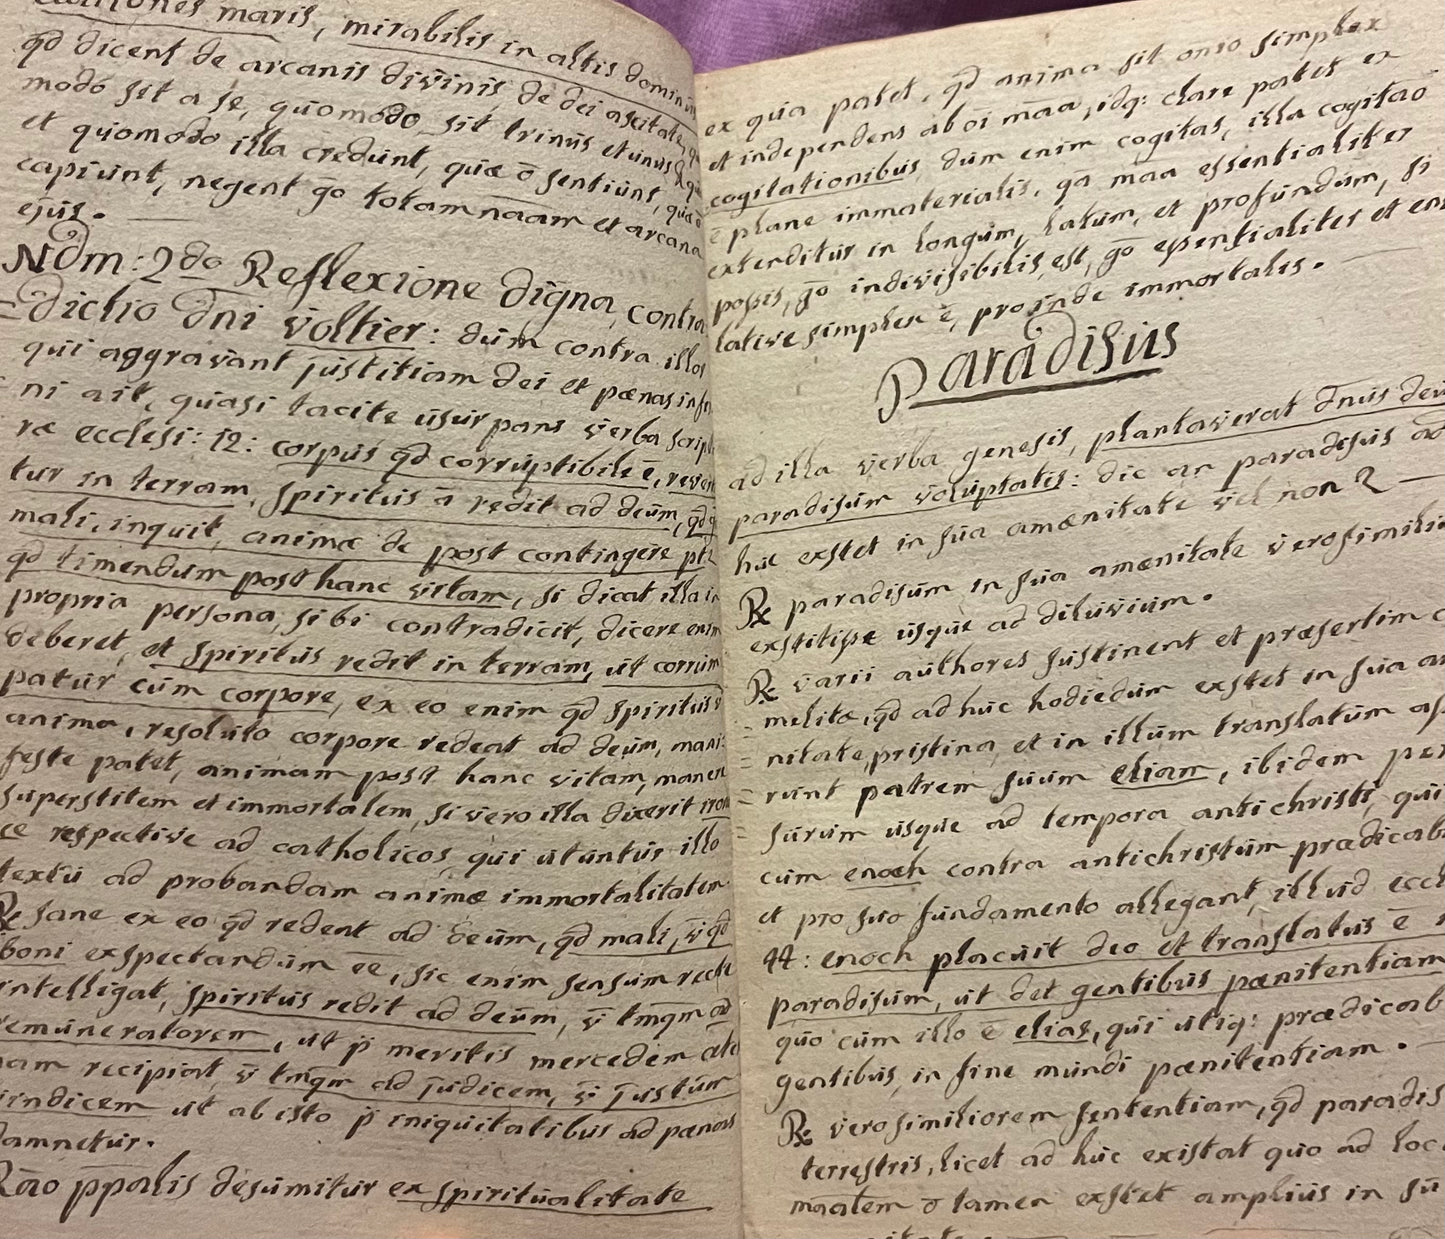 maris, mirabilis in altis dominus
qd dicent de arcanis divinis, de dei aseitate,
modo sit a se, quomodo sit trinus et unus &
et quomodo illa credunt, quæ ō sentiunt, quæ ō
capiunt, negent ḡo totam nāam et arcana
ejus. —
Ndm: 2do Reflexione digna, contra
dictio Dni voltier: dum contra illos
qui aggravant justitiam dei et pœnas infer
ni ait, quasi tacite usurpans verba scriptu
ræ ecclesi: 12: corpus qd corruptibile ē, rever
tur in terram, spiritus ā redit ad deum, qd
mali, inquit, animæ de post contingere pt?
qd timendum post hanc vitam, si dicat illa in
propria persona, sibi contradicit, dicere enim
deberet, et spiritus redit in terram, ut corrum
patur cum corpore, ex eo enim qd spiritus v
anima, resoluto corpore redeat ad deum, mani
feste patet, animam post hanc vitam, manere
superstitem et immortalem, si vero illa dixerit
ce respective ad catholicos, qui utuntur illo
textu ad probandam animæ immortalitatem
℞ sane ex eo qd redeat ad deum, qd mali, v̄ qd
boni exspectandum ēē, sic enim sensum recte
intelligat, spiritus redit ad deum, v̄ tmqm ad
remuneratorem, ut p̄ meritis mercedem
nam recipiat, v̄ tmqm ad judicem, v̄ justum
vindicem ut ab isto p̄ iniquitatibus ad pœnas
damnetur.
Rāo pp̄alis desumitur ex spiritualitate
ex quia patet, qd anima sit omo simplex
et independens ab oi māa, idq: clare patet ex
cogitationibus, dum enim cogitas, illa cogitāo
ē plane immaterialis, qa māa essentialiter
extenditur in longum, latum, et profundum, si
possis, ḡo indivisibilis est, ḡo essentialiter et en
tative simplex ē, proinde immortalis. —
Paradisus
ad illa verba genesis, plantaverat dnus deus
paradisum voluptatis: dic an paradisus ad
huc exstet in sua amœnitate vel non? —
℞ paradisum in sua amœnitate verosimilius
exstitisse usque ad diluvium.
℞ varii authores sustinent et præsertim
melitæ, qd ad huc hodiedum exstet in sua amœ
nitate, pristina, et in illum translatum
runt patrem suum eliam, ibidem
surum usque ad tempora antichristi, qui
cum enoch contra antichristum prædicab
et pro suo fundamento allegant, illud eccl
44: enoch placuit deo et translatus ē
paradisum, ut det gentibus pœnitentiam
quo cum illo ē elias, qui utiq: prædicab
gentibus, in fine mundi pœnitentiam. —
℞ verosimiliorem sententiam, qd paradis
terrestris, licet ad huc existat quo ad loc
māatem ō tamen exstet amplius in su